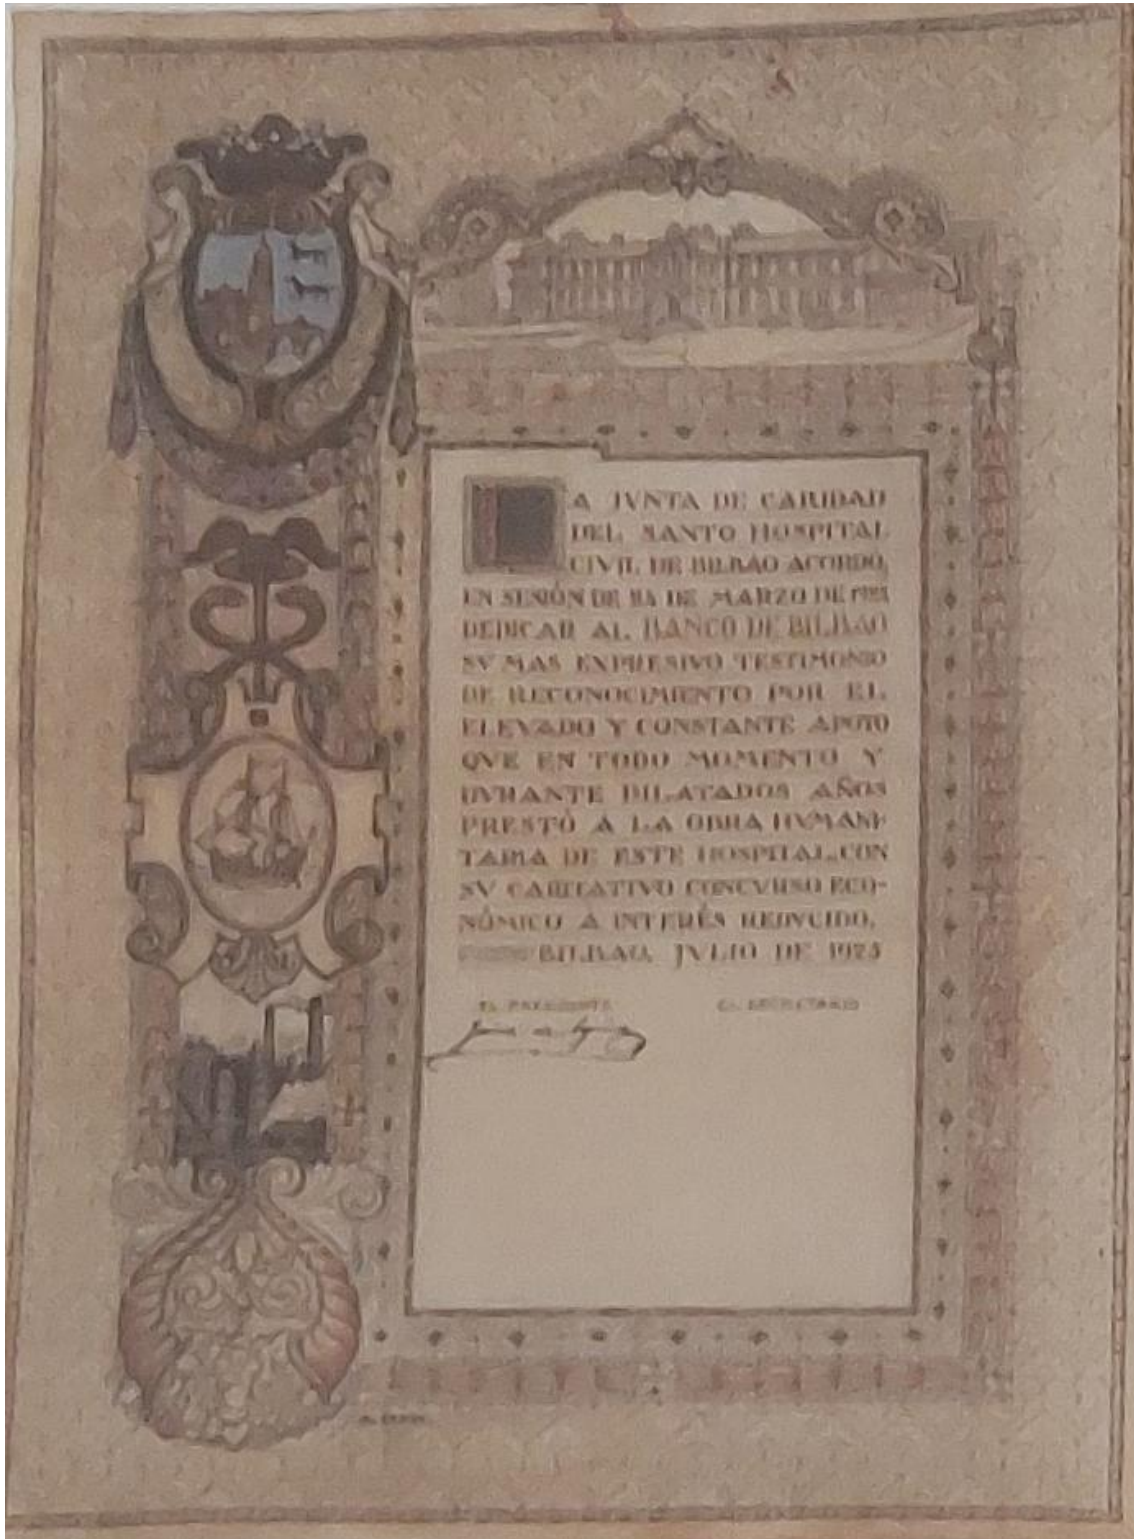 LA JVNTA DE CARIDAD
DEL SANTO HOSPITAL
CIVIL DE BILBAO ACORDO,
EN SESIÓN DE DE MARZO DE
DEDICAR AL BANCO DE BILBAO
SV MAS EXPRESIVO TESTIMONIO
DE RECONOCIMIENTO POR EL
ELEVADO Y CONSTANTE APOYO
QVE EN TODO MOMENTO Y
DVRANTE DILATADOS AÑOS
PRESTÓ A LA OBRA HVMANI-
TARIA DE ESTE HOSPITAL, CON
SV CARITATIVO CONCVRSO ECO-
NÓMICO A INTERÉS REDVCIDO.
BILBAO, JVLIO DE 1925
EL PRESIDENTE EL SECRETARIO